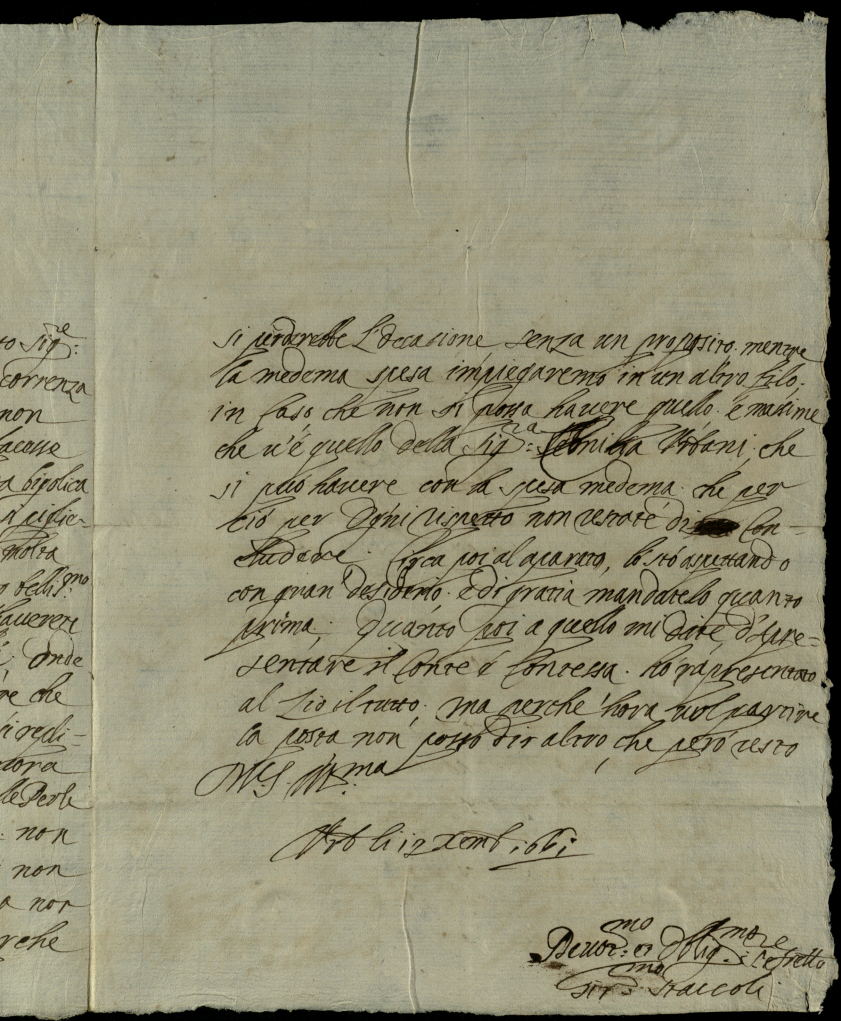 to Sig:re
correnza
non
facesse
ra bigolica
n piglie-
molta
o bellis:mo
hauerete
onde
re che
si redi-
dora
le Perle
non
non
a nor
rche
si perderebbe l'occasione senza un proposito. mentre
la medema spesa impiegaremo in un altro filo.
in Caso che non si possa hauere quello. e maxime
che u'è quello della Sig:ra Urbani, che
si può hauere con la spesa medema. che per
ciò per ogni rispetto non restate di Con-
cludere. Circa poi al aparato, lo stò aspettando
con gran desiderio. e di gratia mandatelo quanto
prima. Quanto poi a quello mi dite, d'apre-
sentare il Conte è Contessa. ho rapresentato
al Zio il tutto, ma perche hora uol partire
la posta non posso dir altro, che però resto
Di V.S. Ill:ma
Urb li 12 Xemb. 1661
Deuot:mo et Oblig:mo Ser:re
Staccoli